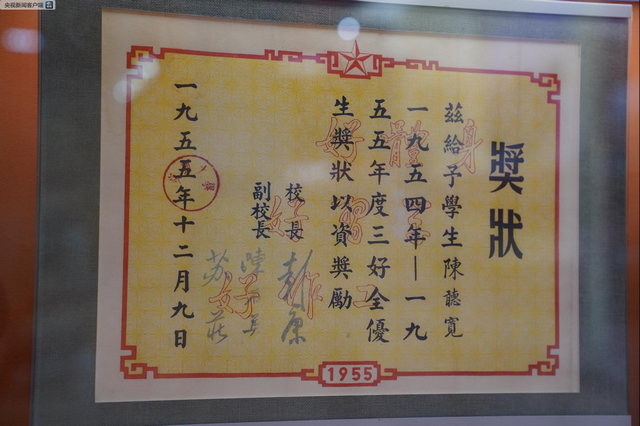 央视新闻客户端
獎狀
茲給予學生陳聽寬
一九五四年—一九
五五年度三好全優
生獎狀以資獎勵
校長
副校長
一九五五年十二月九日
身體好
1955